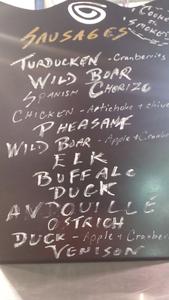 COOKED
SMOKED
SAUSAGES
TURDUCKEN - Cranberries
WILD BOAR
SPANISH CHORIZO
CHICKEN - Artichoke + chive
PHEASANT
WILD BOAR - Apple + Cranber
ELK
BUFFALO
DUCK
ANDOUILLE
OSTRICH
DUCK - Apple + Cranber
VENISON